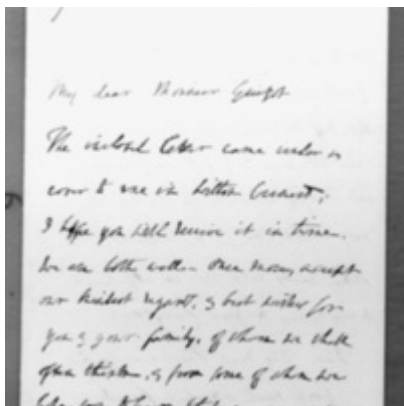 My dear Monsieur Guizot
The inclosed letter came under a
cover to me in
I hope you will receive it in time.
We are both well. Once more, accept
our kindest regards, & best wishes for
you & your family, of whom we shall
often think, & from some of whom we